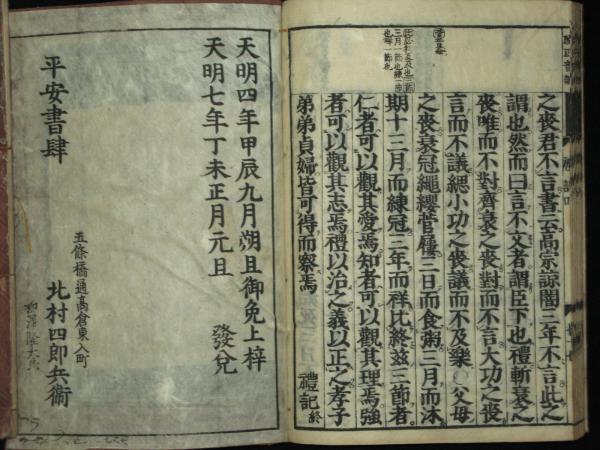 之喪君不言書云高宗諒闇三年不言此之
謂也然而曰言不文者謂臣下也禮斬衰之
喪唯而不對齊衰之喪對而不言大功之喪
言而不議緦小功之喪議而不及樂父母
之喪衰冠繩纓菅屨三日而食粥三月而沐
期十三月而練冠三年而祥比終茲三節者
仁者可以觀其愛焉知者可以觀其理焉強
者可以觀其志焉禮以治之義以正之孝子
弟弟貞婦皆可得而察焉 禮記終
天明四年甲辰九月朔旦御免上梓
天明七年丁未正月元旦 發兌
平安書肆
五條橋通高倉東入町
北村四郎兵衞